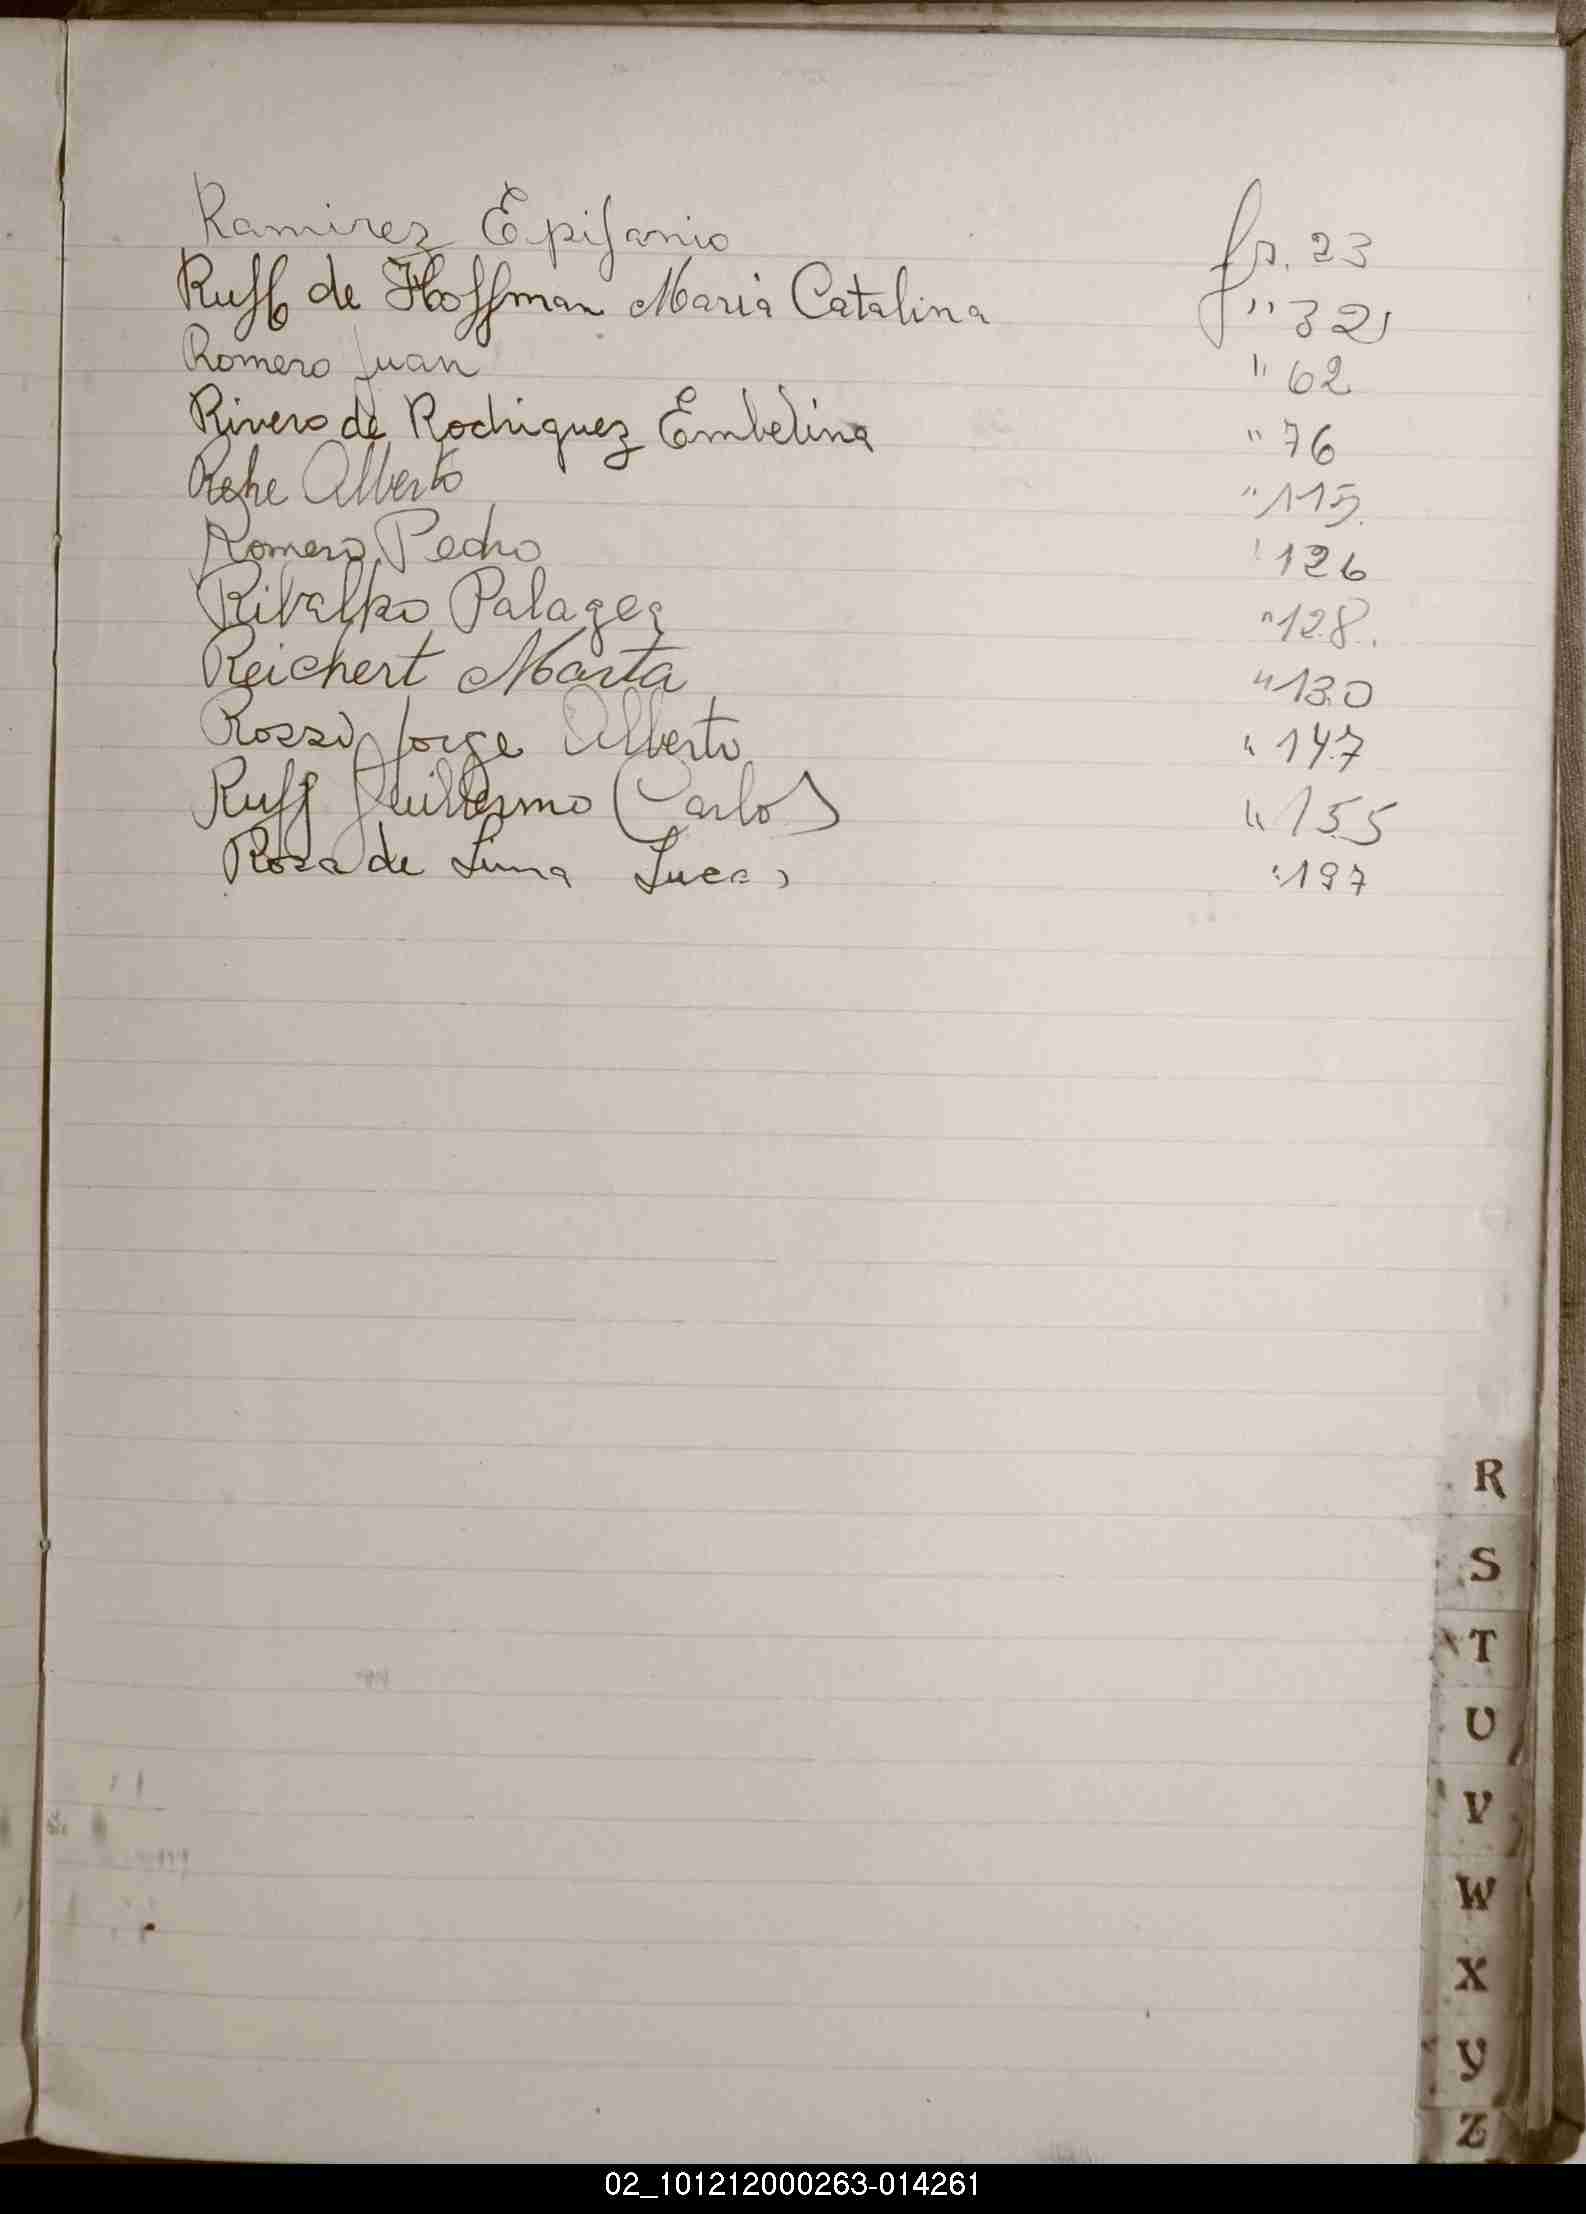 Ramirez Epifanio fs. 23
Ruff de Hoffman Maria Catalina " 32
Romero Juan " 62
Rivero de Rodriguez Embelina " 76
Rehe Alberto " 115
Romero Pedro " 126
Ribalko Palagea " 128
Reichert Marta " 130
Rossi Jorge Alberto " 147
Ruff Guillermo Carlos " 155
Rosa de Lima Lucas " 197
R
S
T
U
V
W
X
Y
Z
02_101212000263-014261